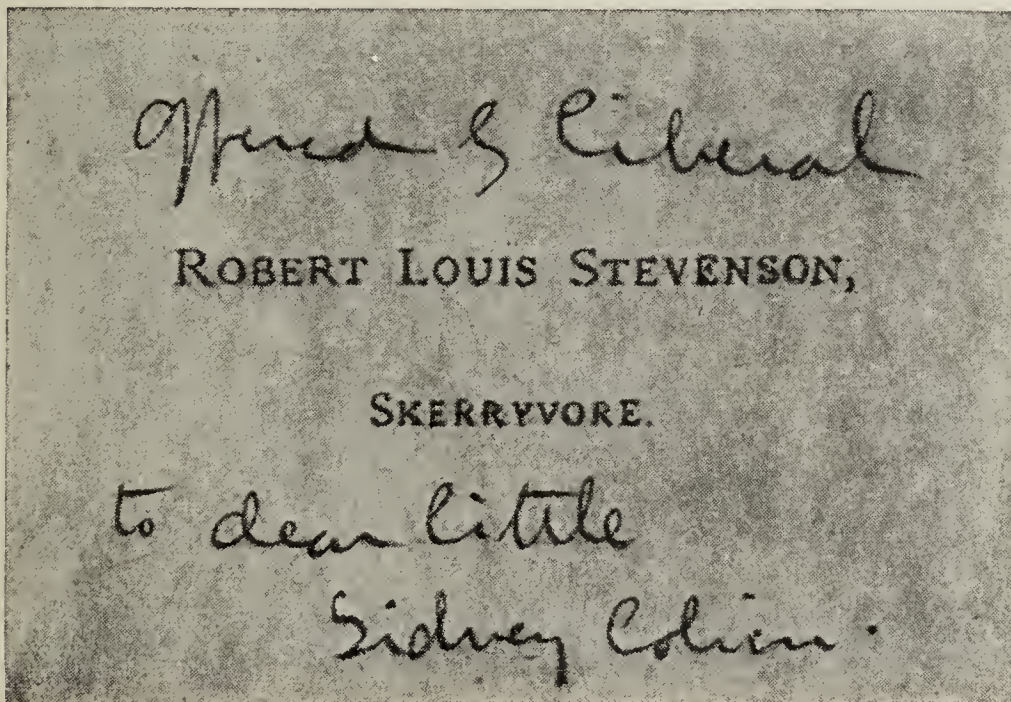 Offered by Liberal
ROBERT LOUIS STEVENSON,
SKERRYVORE.
to dear little
Sidney Colvin.